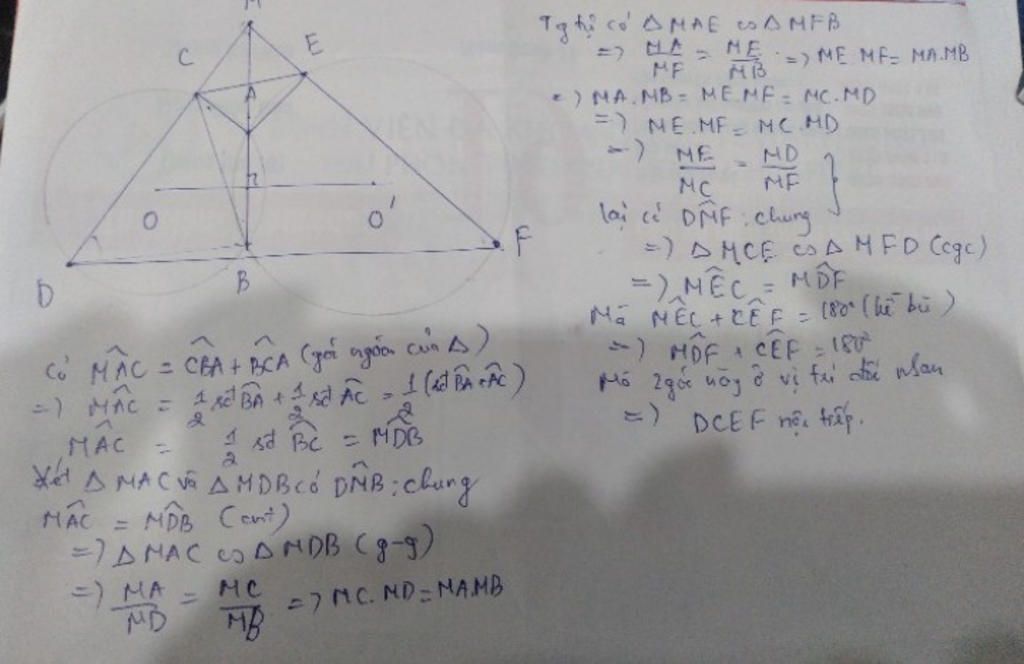 M
C
E
A
n
O
O'
D
B
F
Có M̂AC = ĈBA + B̂CA (góc ngoài của Δ)
=> M̂AC = 1/2 sđ B̂A + 1/2 sđ ÂC = 1/2 (sđ B̂A + ÂC)
M̂AC = 1/2 sđ B̂C = M̂DB
Xét Δ MAC và Δ MDB có D̂MB : chung
M̂AC = M̂DB (cmt)
=> Δ MAC ∽ Δ MDB (g-g)
=> MA/MD = MC/MB => MC.MD = MA.MB
Tg tự có Δ MAE ∽ Δ MFB
=> MA/MF = ME/MB => ME.MF = MA.MB
=> MA.MB = ME.MF = MC.MD
=> ME.MF = MC.MD
=> ME/MC = MD/MF }
lại có D̂MF : chung
=> Δ MCE ∽ Δ MFD (cgc)
=> M̂EC = M̂DF
Mà M̂EC + ĈEF = 180° (kề bù)
=> M̂DF + ĈEF = 180°
Mà 2 góc này ở vị trí đối nhau
=> DCEF nội tiếp.